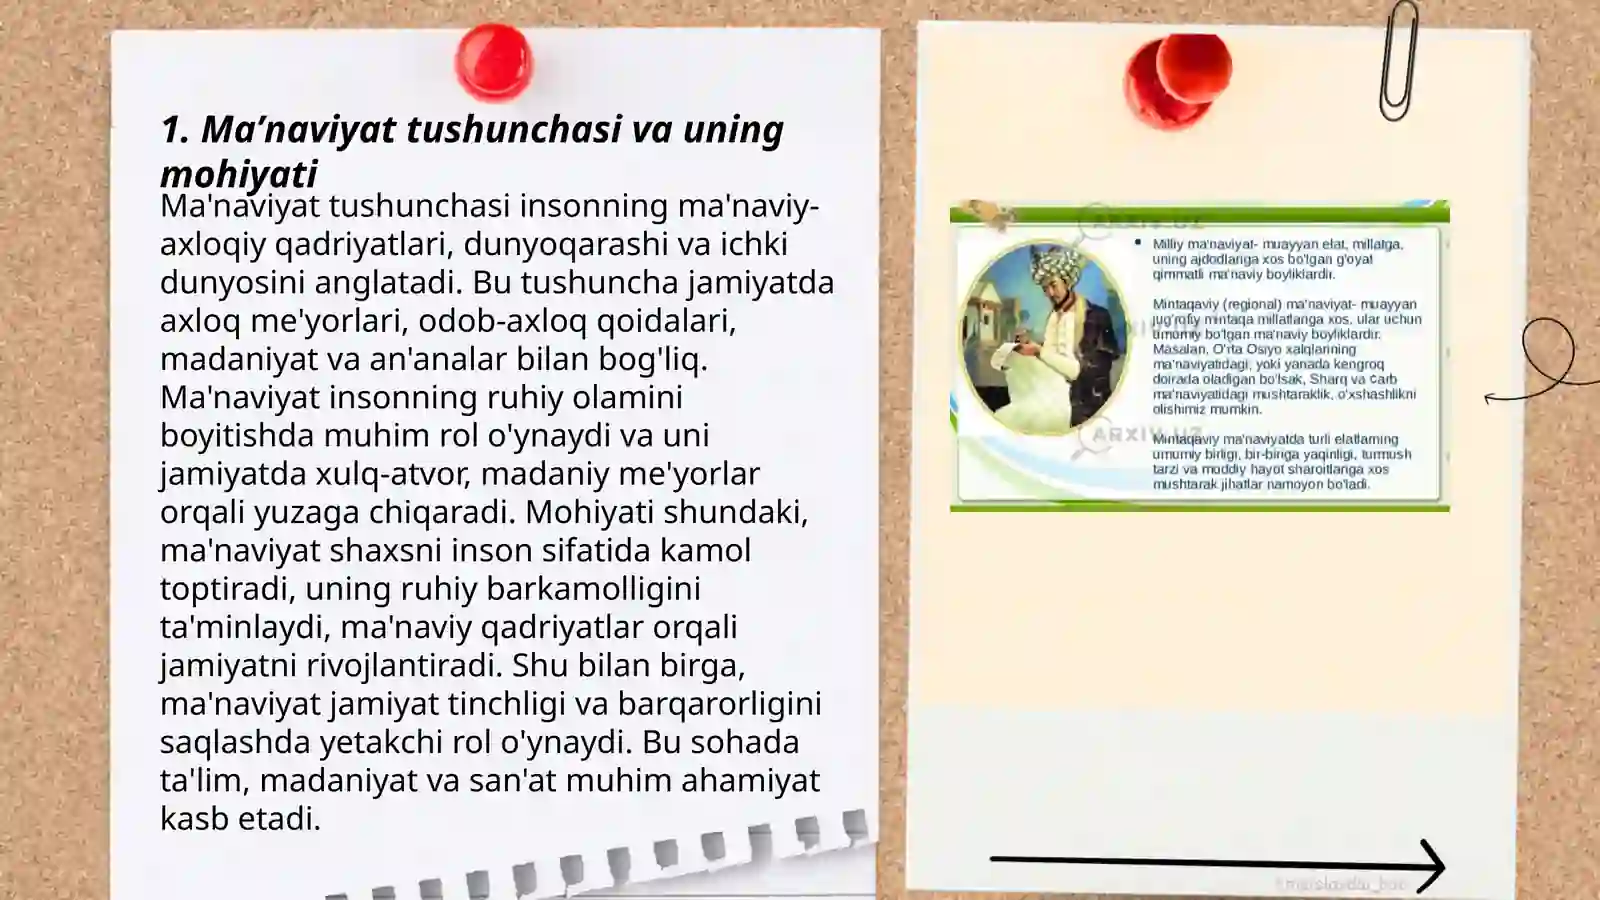 1. Ma’naviyat tushunchasi va uning
mohiyati
Ma'naviyat tushunchasi insonning ma'naviy-
axloqiy qadriyatlari, dunyoqarashi va ichki
dunyosini anglatadi. Bu tushuncha jamiyatda
axloq me'yorlari, odob-axloq qoidalari,
madaniyat va an'analar bilan bog'liq.
Ma'naviyat insonning ruhiy olamini
boyitishda muhim rol o'ynaydi va uni
jamiyatda xulq-atvor, madaniy me'yorlar
orqali yuzaga chiqaradi. Mohiyati shundaki,
ma'naviyat shaxsni inson sifatida kamol
toptiradi, uning ruhiy barkamolligini
ta'minlaydi, ma'naviy qadriyatlar orqali
jamiyatni rivojlantiradi. Shu bilan birga,
ma'naviyat jamiyat tinchligi va barqarorligini
saqlashda yetakchi rol o'ynaydi. Bu sohada
ta'lim, madaniyat va san'at muhim ahamiyat
kasb etadi.
ARXIV.UZ
• Milliy ma'naviyat- muayyan elat, millatga,
uning ajdodlariga xos bo'lgan g'oyat
qimmatli ma'naviy boyliklardir.
Mintaqaviy (regional) ma'naviyat- muayyan
jug'rofiy mintaqa millatlariga xos, ular uchun
umumiy bo'lgan ma'naviy boyliklardir.
Masalan, O'rta Osiyo xalqlarining
ma'naviyatidagi, yoki yanada kengroq
doirada oladigan bo'lsak, Sharq va Garb
ma'naviyatidagi mushtaraklik, o'xshashlikni
olishimiz mumkin.
ARXIV.UZ
Mintaqaviy ma'naviyatda turli elatlarning
umumiy birligi, bir-biriga yaqinligi, turmush
tarzi va moddiy hayot sharoitlariga xos
mushtarak jihatlar namoyon bo'ladi.